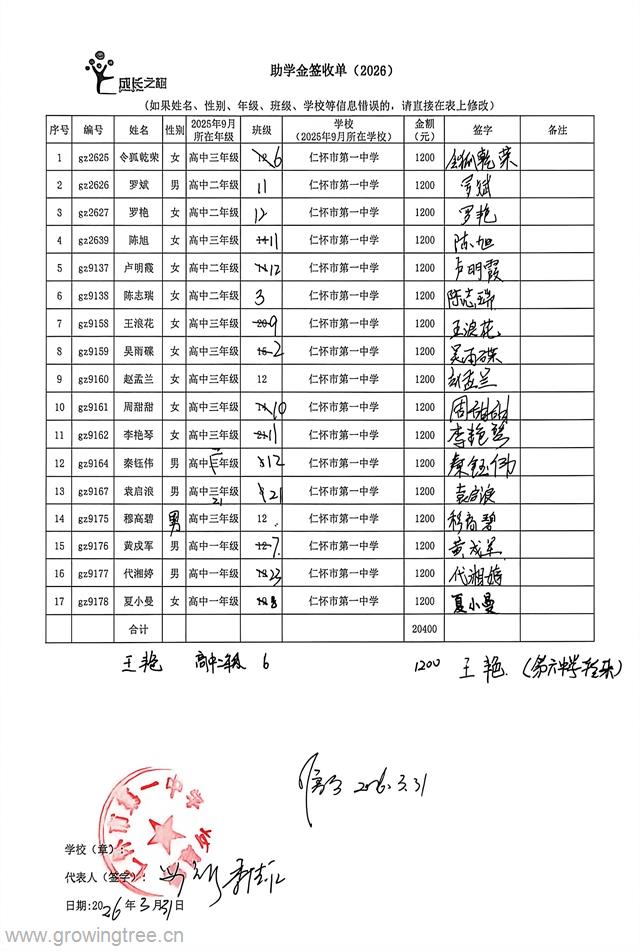 成长之树
助学金签收单（2026）
（如果姓名、性别、年级、班级、学校等信息错误的，请直接在表上修改）
序号 编号 姓名 性别 2025年9月所在年级 班级 学校（2025年9月所在学校） 金额（元） 签字 备注
1 gz2625 令狐乾荣 女 高中三年级 12 6 仁怀市第一中学 1200 令狐乾荣
2 gz2626 罗斌 男 高中二年级 11 仁怀市第一中学 1200 罗斌
3 gz2627 罗艳 女 高中二年级 12 仁怀市第一中学 1200 罗艳
4 gz2639 陈旭 女 高中三年级 11 仁怀市第一中学 1200 陈旭
5 gz9137 卢明霞 女 高中二年级 12 仁怀市第一中学 1200 卢明霞
6 gz9138 陈志瑞 女 高中二年级 3 仁怀市第一中学 1200 陈志瑞
7 gz9158 王浪花 女 高中三年级 20 9 仁怀市第一中学 1200 王浪花
8 gz9159 吴雨碟 女 高中三年级 15 2 仁怀市第一中学 1200 吴雨碟
9 gz9160 赵孟兰 女 高中三年级 12 仁怀市第一中学 1200 赵孟兰
10 gz9161 周甜甜 女 高中三年级 10 仁怀市第一中学 1200 周甜甜
11 gz9162 李艳琴 女 高中三年级 21 11 仁怀市第一中学 1200 李艳琴
12 gz9164 秦钰伟 男 高中三年级 二 12 仁怀市第一中学 1200 秦钰伟
13 gz9167 袁启浪 男 高中三年级 21 仁怀市第一中学 1200 袁启浪
21
14 gz9175 穆高碧 男 高中三年级 12 仁怀市第一中学 1200 穆高碧
15 gz9176 黄成军 男 高中一年级 12 7 仁怀市第一中学 1200 黄成军
16 gz9177 代湘婷 男 高中一年级 23 仁怀市第一中学 1200 代湘婷
17 gz9178 夏小曼 女 高中一年级 8 仁怀市第一中学 1200 夏小曼
合计 20400
王艳 高中二年级 6 1200 王艳
2026.3.31
学校（章）：
代表人（签字）：
日期：2026年3月31日
www.growingtree.cn